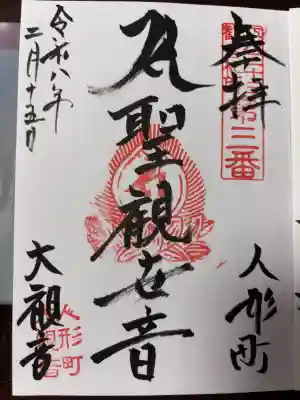 奉拝
三番
人形町
聖觀世音
令和八年
二月十五日
大観音
人形町